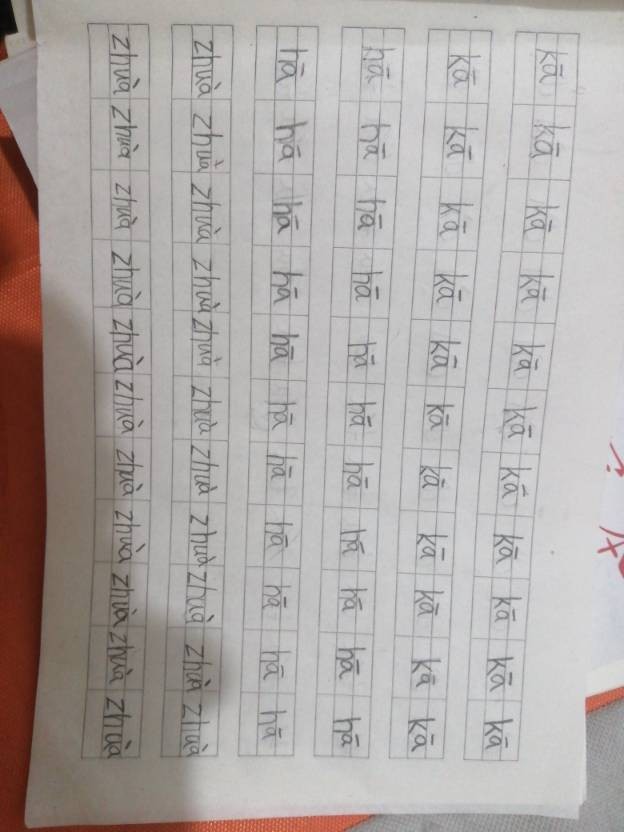 kā kā kā kā kā kā kā kā kā kā kā
kā kā kā kā kā kā kā kā kā kā kā
hā hā hā hā hā hā hā hā hā hā hā
hā hā hā hā hā hā hā hā hā hā hā
zhuà zhuà zhuà zhuà zhuà zhuà zhuà zhuà zhuà zhuà zhuà
zhuà zhuà zhuà zhuà zhuà zhuà zhuà zhuà zhuà zhuà zhuà